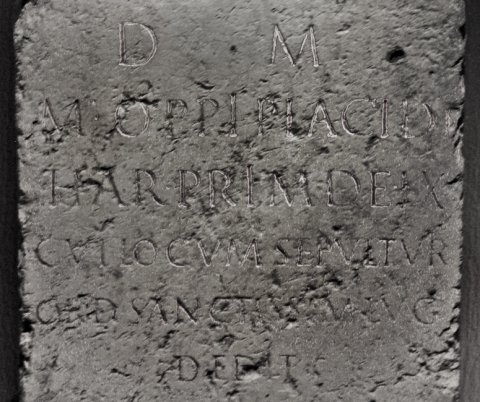 D M
M OPPI PLACIDI
HAR·PRIM DE LX
CVI LOCVM SEPVLTVR
ORD SANCTISSIM AVG
DEDIT